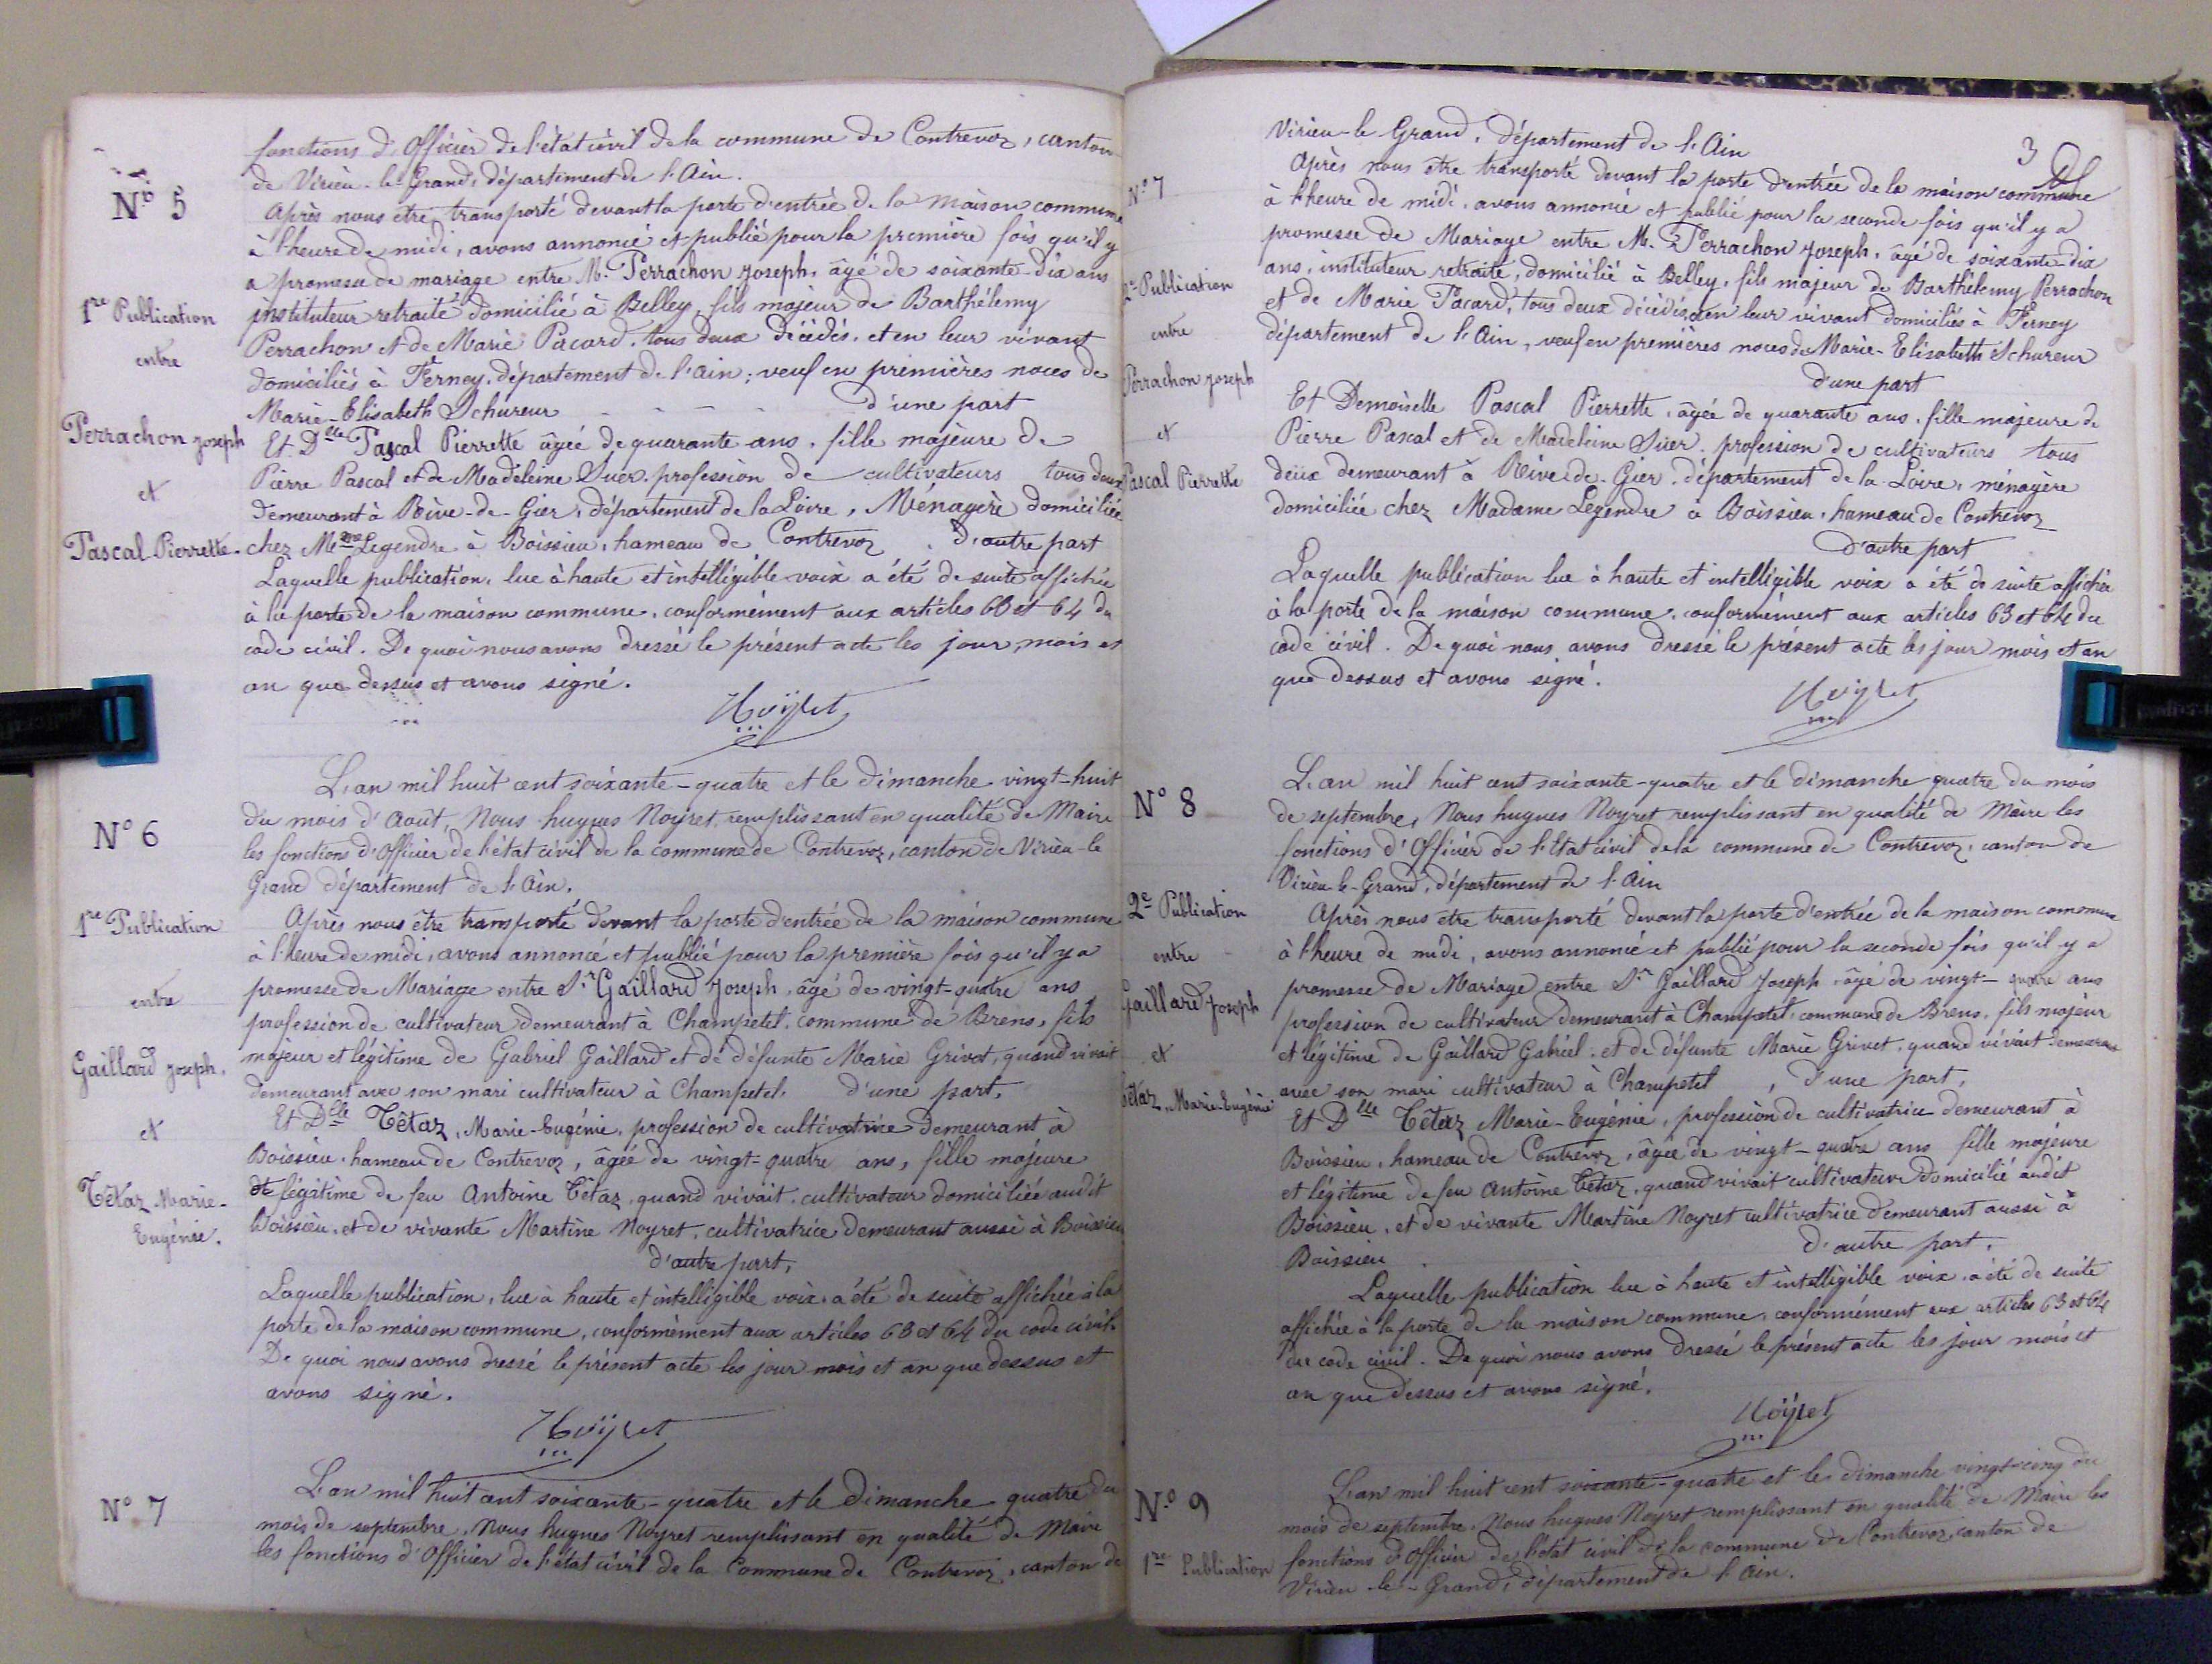 fonctions d'Officier de l'état civil de la commune de Contrevoz, canton
de Virieu-le-Grand, département de l'Ain.
N° 5
Après nous être transporté devant la porte d'entrée de la maison commune
à l'heure de midi, avons annoncé et publié pour la première fois qu'il y
a promesse de mariage entre M. Perrachon Joseph, âgé de soixante-dix ans
1re Publication
instituteur retraité domicilié à Belley, fils majeur de Barthélemy
Perrachon et de Marie Pacard, tous deux décédés, et en leur vivant
entre
domiciliés à Ferney, département de l'ain; veuf en premières noces de
Marie-Elisabeth Schureur - - - - d'une part
Perrachon Joseph
Et Dlle Pascal Pierrette âgée de quarante ans, fille majeure de
Pierre Pascal et de Madeleine Suer profession de cultivateurs tous deux
et
demeurant à Rive-de-Gier, département de la Loire, Ménagère domiciliée
Pascal Pierrette.
chez Mme Legendre à Boissieu, hameau de Contrevoz, d'autre part
Laquelle publication, lue à haute et intelligible voix a été de suite affichée
à la porte de la maison commune, conformément aux articles 63 et 64 du
code civil. De quoi nous avons dressé le présent acte les jour, mois et
an que dessus et avons signé.
Noyret
L'an mil huit cent soixante-quatre et le dimanche vingt-huit
N° 6
du mois d'Août, Nous hugues Noyret remplissant en qualité de Maire
les fonctions d'Officier de l'état civil de la commune de Contrevoz, canton de Virieu-le
Grand département de l'Ain.
1re Publication
Après nous être transporté devant la porte d'entrée de la maison commune
à l'heure de midi, avons annoncé et publié pour la première fois qu'il y a
entre
promesse de Mariage entre Sr Gaillard Joseph, âgé de vingt-quatre ans
profession de cultivateur demeurant à Champetel, commune de Brens, fils
Gaillard Joseph,
majeur et légitime de Gabriel Gaillard et de défunte Marie Grivet, quand vivait
demeurant avec son mari cultivateur à Champetel, d'une part.
et
Et Dlle Têtaz, Marie-Eugénie, profession de cultivatrice demeurant à
Boissieu, hameau de Contrevoz, âgée de vingt-quatre ans, fille majeure
Têtaz Marie-
Eugénie.
et légitime de feu Antoine Têtaz, quand vivait, cultivateur domiciliée audit
Boissieu, et de vivante Martine Noyret, cultivatrice demeurant aussi à Boissieu
d'autre part,
Laquelle publication, lue à haute et intelligible voix, a été de suite affichée à la
porte de la maison commune, conformément aux articles 63 et 64 du code civil.
De quoi nous avons dressé le présent acte les jour mois et an que dessus et
avons signé.
Noyret
N° 7
L'an mil huit cent soixante-quatre et le Dimanche quatre du
mois de septembre, Nous hugues Noyret remplissant en qualité de Maire
les fonctions d'Officier de l'état civil de la Commune de Contrevoz, canton de
3
Virieu-le Grand, département de l'Ain
N° 7
Après nous être transporté devant la porte d'entrée de la maison commune
à l'heure de midi, avons annoncé et publié pour la seconde fois qu'il y a
promesse de Mariage entre M. Perrachon Joseph, âgé de soixante-dix
2e Publication
ans, instituteur retraité, domicilié à Belley, fils majeur de Barthélemy Perrachon
et de Marie Pacard, tous deux décédés, en leur vivant domiciliés à Ferney
entre
département de l'Ain, veuf en premières noces de Marie-Elisabeth Schureur
Perrachon Joseph
d'une part
Et Demoiselle Pascal Pierrette, âgée de quarante ans, fille majeure de
et
Pierre Pascal et de Madeleine Suer, profession de cultivateurs tous
Pascal Pierrette
deux demeurant à Rive-de-Gier, département de la Loire, ménagère
domiciliée chez Madame Legendre à Boissieu, hameau de Contrevoz
d'autre part
Laquelle publication lue à haute et intelligible voix a été de suite affichée
à la porte de la maison commune, conformément aux articles 63 et 64 du
code civil. De quoi nous avons dressé le présent acte les jour mois et an
que dessus et avons signé.
Noyret
L'an mil huit cent soixante-quatre et le dimanche quatre du mois
N° 8
de septembre, Nous hugues Noyret remplissant en qualité de Maire les
fonctions d'Officier de l'état civil de la commune de Contrevoz, canton de
Virieu-le-Grand, département de l'Ain
2e Publication
Après nous être transporté devant la porte d'entrée de la maison commune
entre
à l'heure de midi, avons annoncé et publié pour la seconde fois qu'il y a
Gaillard Joseph
promesse de Mariage entre Sr Gaillard Joseph âgé de vingt-quatre ans
profession de cultivateur demeurant à Champetel, commune de Brens, fils majeur
et
et légitime de Gaillard Gabriel, et de défunte Marie Grivet, quand vivait demeurant
Têtaz, Marie-Eugénie
avec son mari cultivateur à Champetel, d'une part,
Et Dlle Têtaz Marie-Eugénie, profession de cultivatrice demeurant à
Boissieu, hameau de Contrevoz, âgée de vingt-quatre ans fille majeure
et légitime de feu Antoine Têtaz, quand vivait cultivateur domicilié audit
Boissieu, et de vivante Martine Noyret cultivatrice demeurant aussi à
Boissieu d'autre part,
Laquelle publication lue à haute et intelligible voix, a été de suite
affichée à la porte de la maison commune, conformément aux articles 63 et 64
du code civil. De quoi nous avons dressé le présent acte les jour mois et
an que dessus et avons signé.
Noyret
N° 9
L'an mil huit cent soixante-quatre et le dimanche vingt-cinq du
mois de septembre, Nous hugues Noyret remplissant en qualité de Maire les
1re Publication
fonctions d'Officier de l'état civil de la commune de Contrevoz, canton de
Virieu-le-Grand, département de l'Ain.